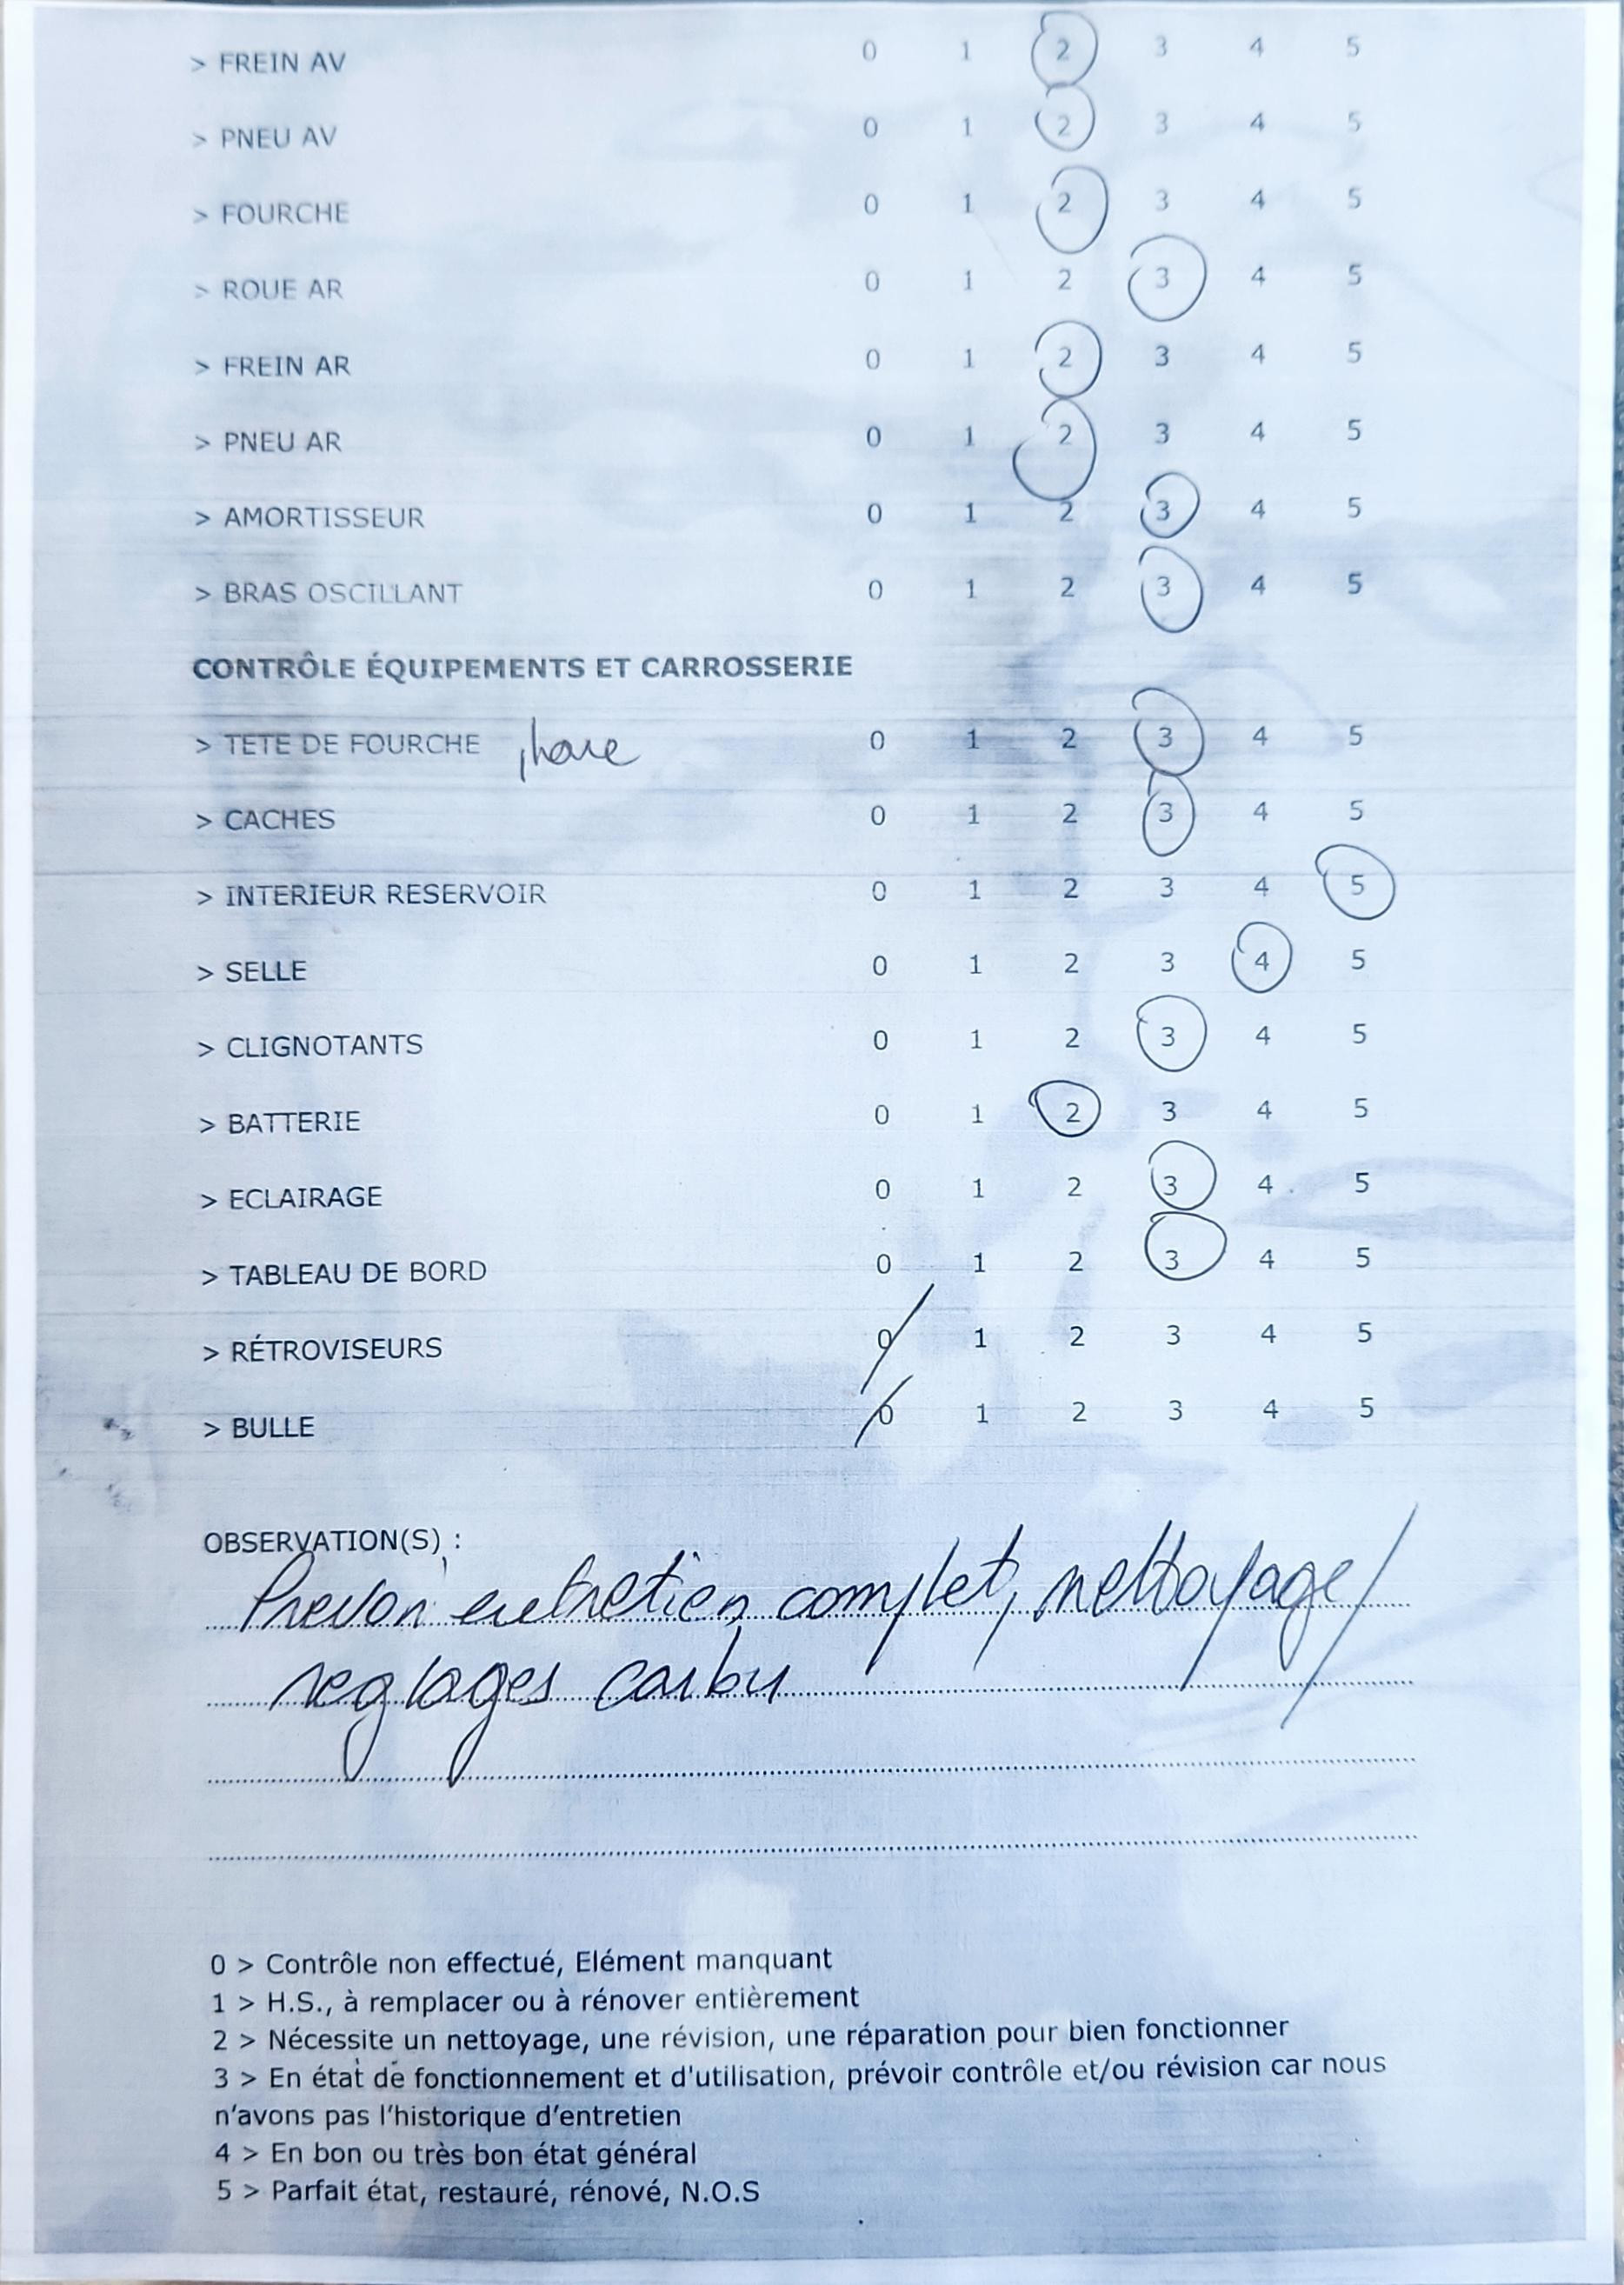 > FREIN AV 0 1 2 3 4 5
> PNEU AV 0 1 2 3 4 5
> FOURCHE 0 1 2 3 4 5
> ROUE AR 0 1 2 3 4 5
> FREIN AR 0 1 2 3 4 5
> PNEU AR 0 1 2 3 4 5
> AMORTISSEUR 0 1 2 3 4 5
> BRAS OSCILLANT 0 1 2 3 4 5
CONTRÔLE ÉQUIPEMENTS ET CARROSSERIE
> TETE DE FOURCHE phare 0 1 2 3 4 5
> CACHES 0 1 2 3 4 5
> INTERIEUR RESERVOIR 0 1 2 3 4 5
> SELLE 0 1 2 3 4 5
> CLIGNOTANTS 0 1 2 3 4 5
> BATTERIE 0 1 2 3 4 5
> ECLAIRAGE 0 1 2 3 4 5
> TABLEAU DE BORD 0 1 2 3 4 5
> RÉTROVISEURS 0 1 2 3 4 5
> BULLE 0 1 2 3 4 5
OBSERVATION(S) :
Prevoir entretien complet, nettoyage/
reglages carbu
0 > Contrôle non effectué, Elément manquant
1 > H.S., à remplacer ou à rénover entièrement
2 > Nécessite un nettoyage, une révision, une réparation pour bien fonctionner
3 > En état de fonctionnement et d'utilisation, prévoir contrôle et/ou révision car nous
n'avons pas l'historique d'entretien
4 > En bon ou très bon état général
5 > Parfait état, restauré, rénové, N.O.S